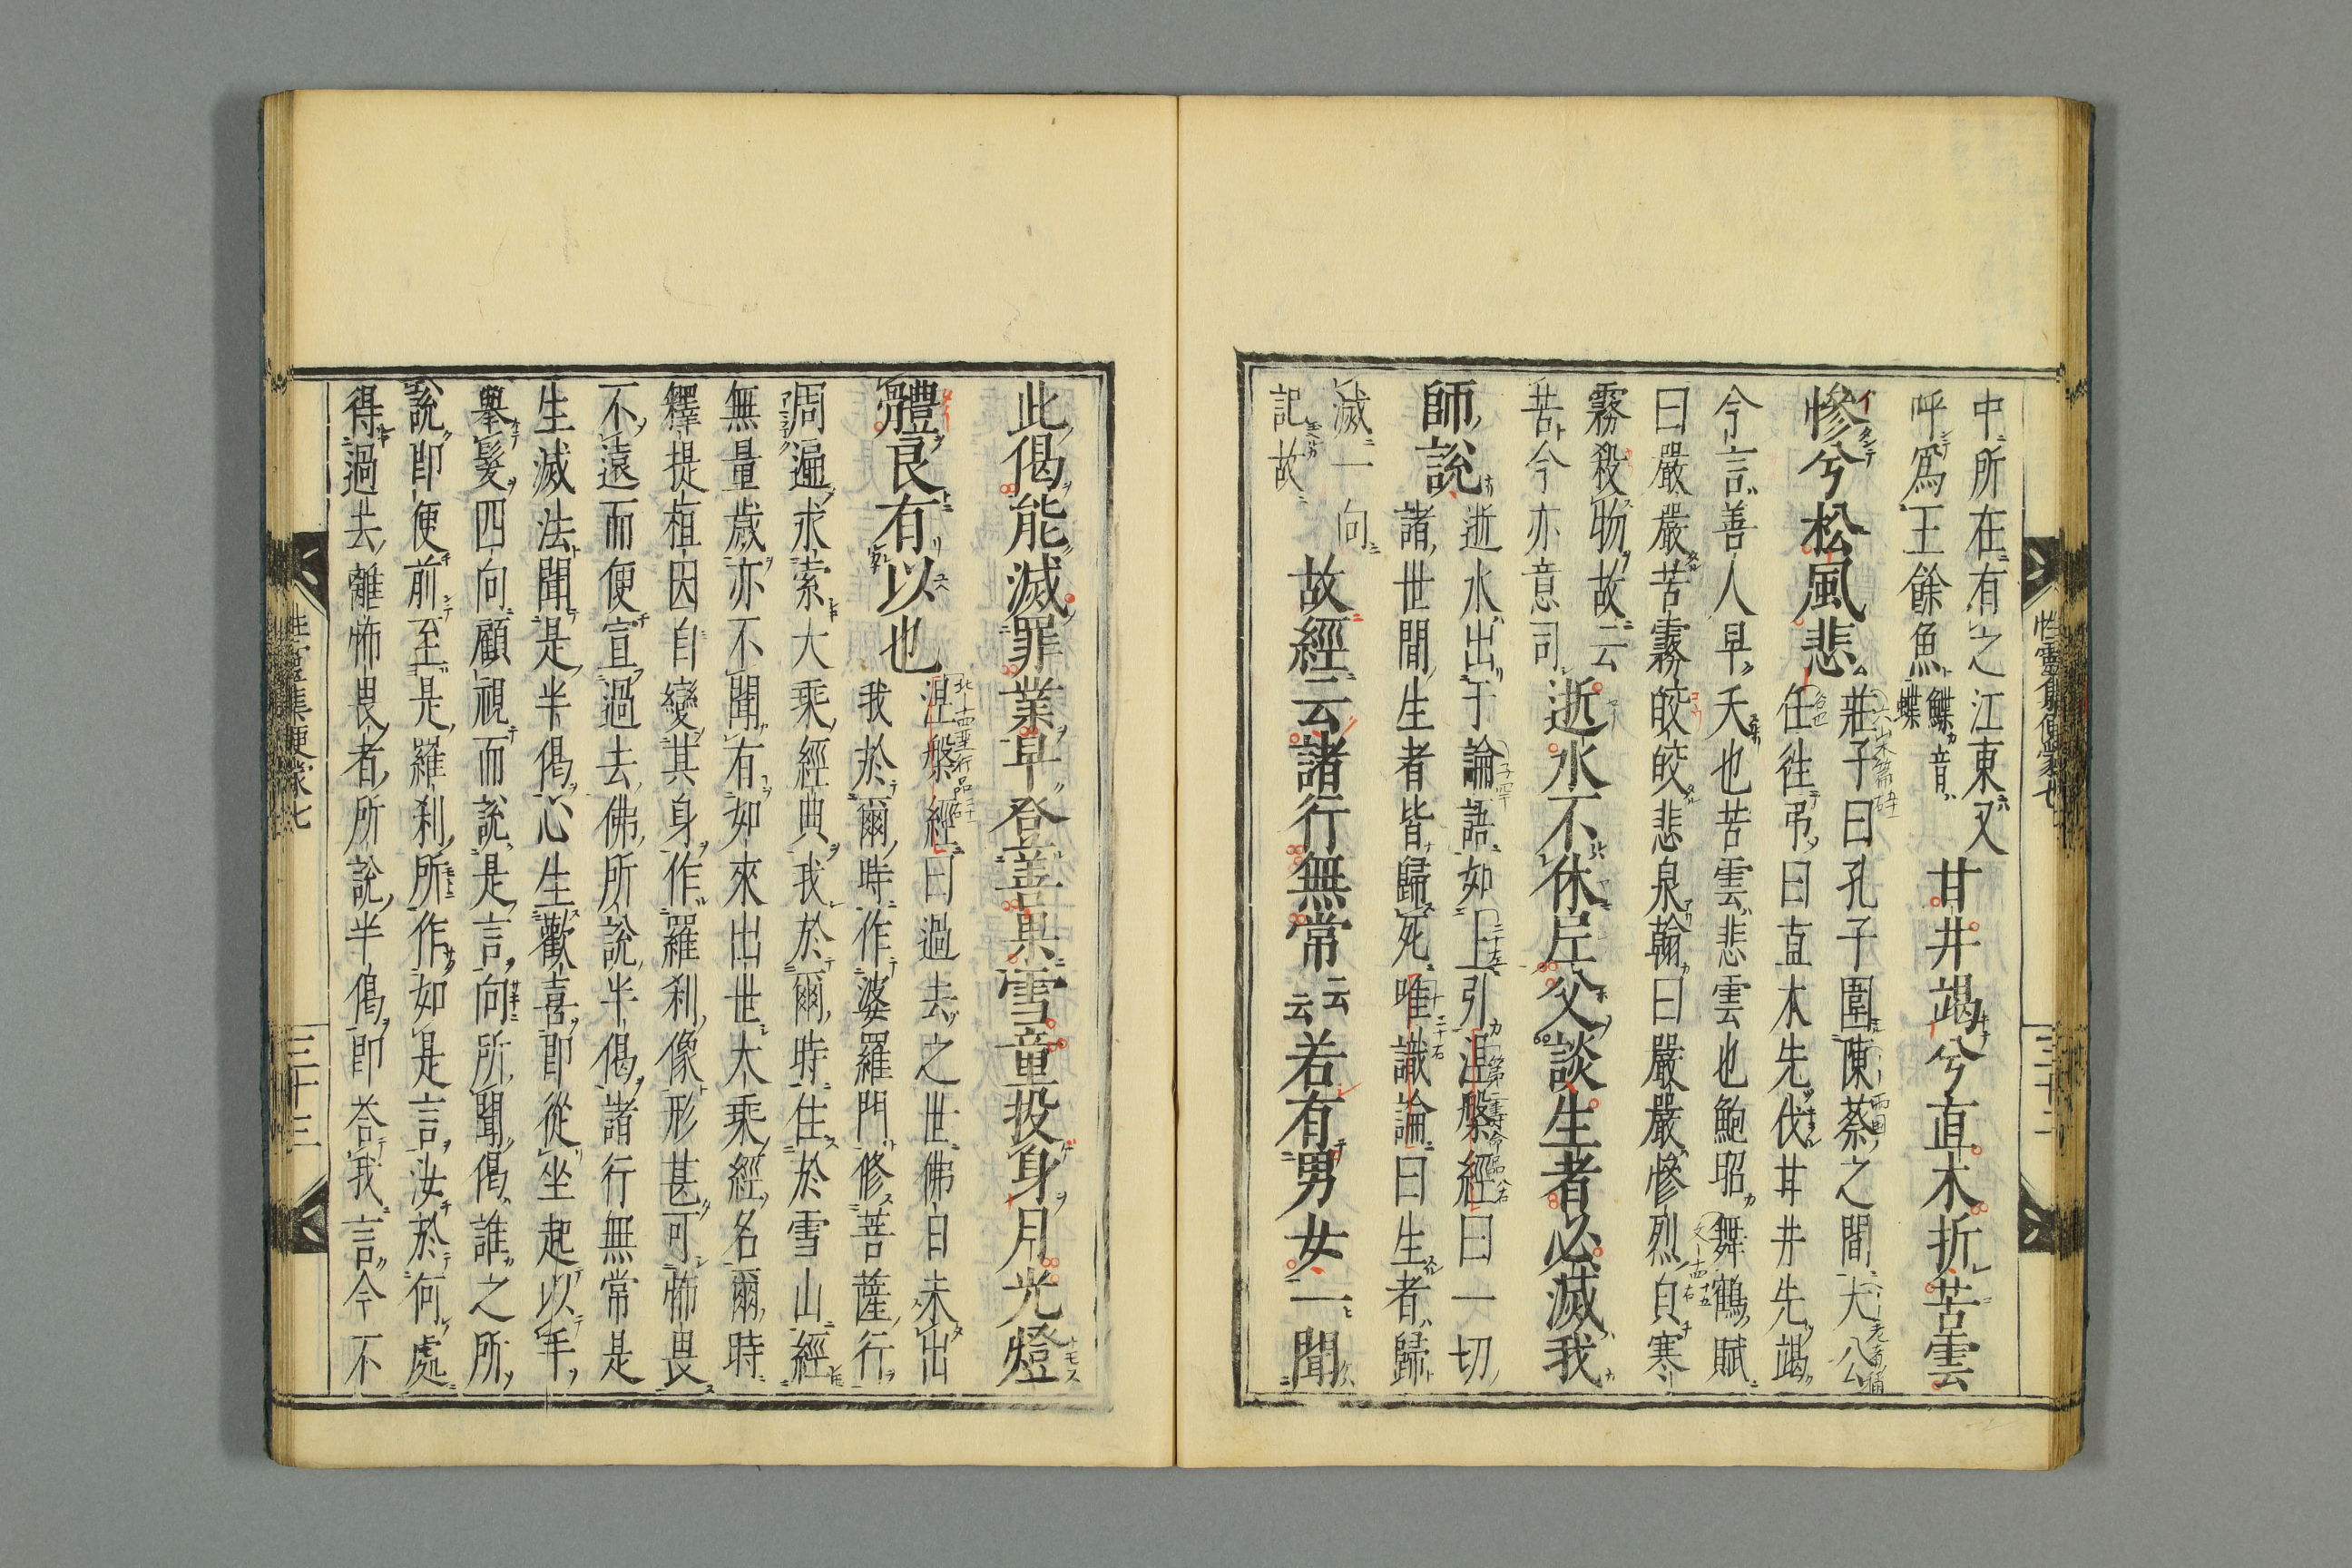 性靈集便蒙七
三十二
中所在有之江東又
呼爲王餘魚鰈音蝶甘井竭兮直木折苦雲
慘兮松風悲莊子曰孔子圍陳蔡之間大公
任往弔曰直木先伐甘井先竭
今言善人早夭也苦雲悲雲也鮑昭舞鶴賦
曰嚴嚴苦霧皎皎悲泉翰曰嚴嚴慘烈皃寒
霧殺物故云
苦今亦意司逝水不休岸父談生者必滅我
師說逝水出于論語如上引涅槃經曰一切
諸世間生者皆歸死唯識論曰生者歸
滅一向
記故故經云諸行無常云云若有男女一聞
此偈能滅罪業早登菩果雪童投身月光燈
體良有以也涅槃經曰過去之世佛日未出
我於爾時作婆羅門修菩薩行
周遍求索大乘經典我於爾時住於雪山經
無量歲亦不聞有如來出世大乘經名爾時
釋提桓因自變其身作羅刹像形甚可怖畏
不遠而便宣過去佛所說半偈諸行無常是
生滅法聞是半偈心生歡喜即從坐起以手
擧髮四向顧視而說是言向所聞偈誰之所
說即便前至是羅刹所作如是言汝於何處
得過去離怖畏者所說半偈即荅我言今不
性靈集便蒙七
三十三